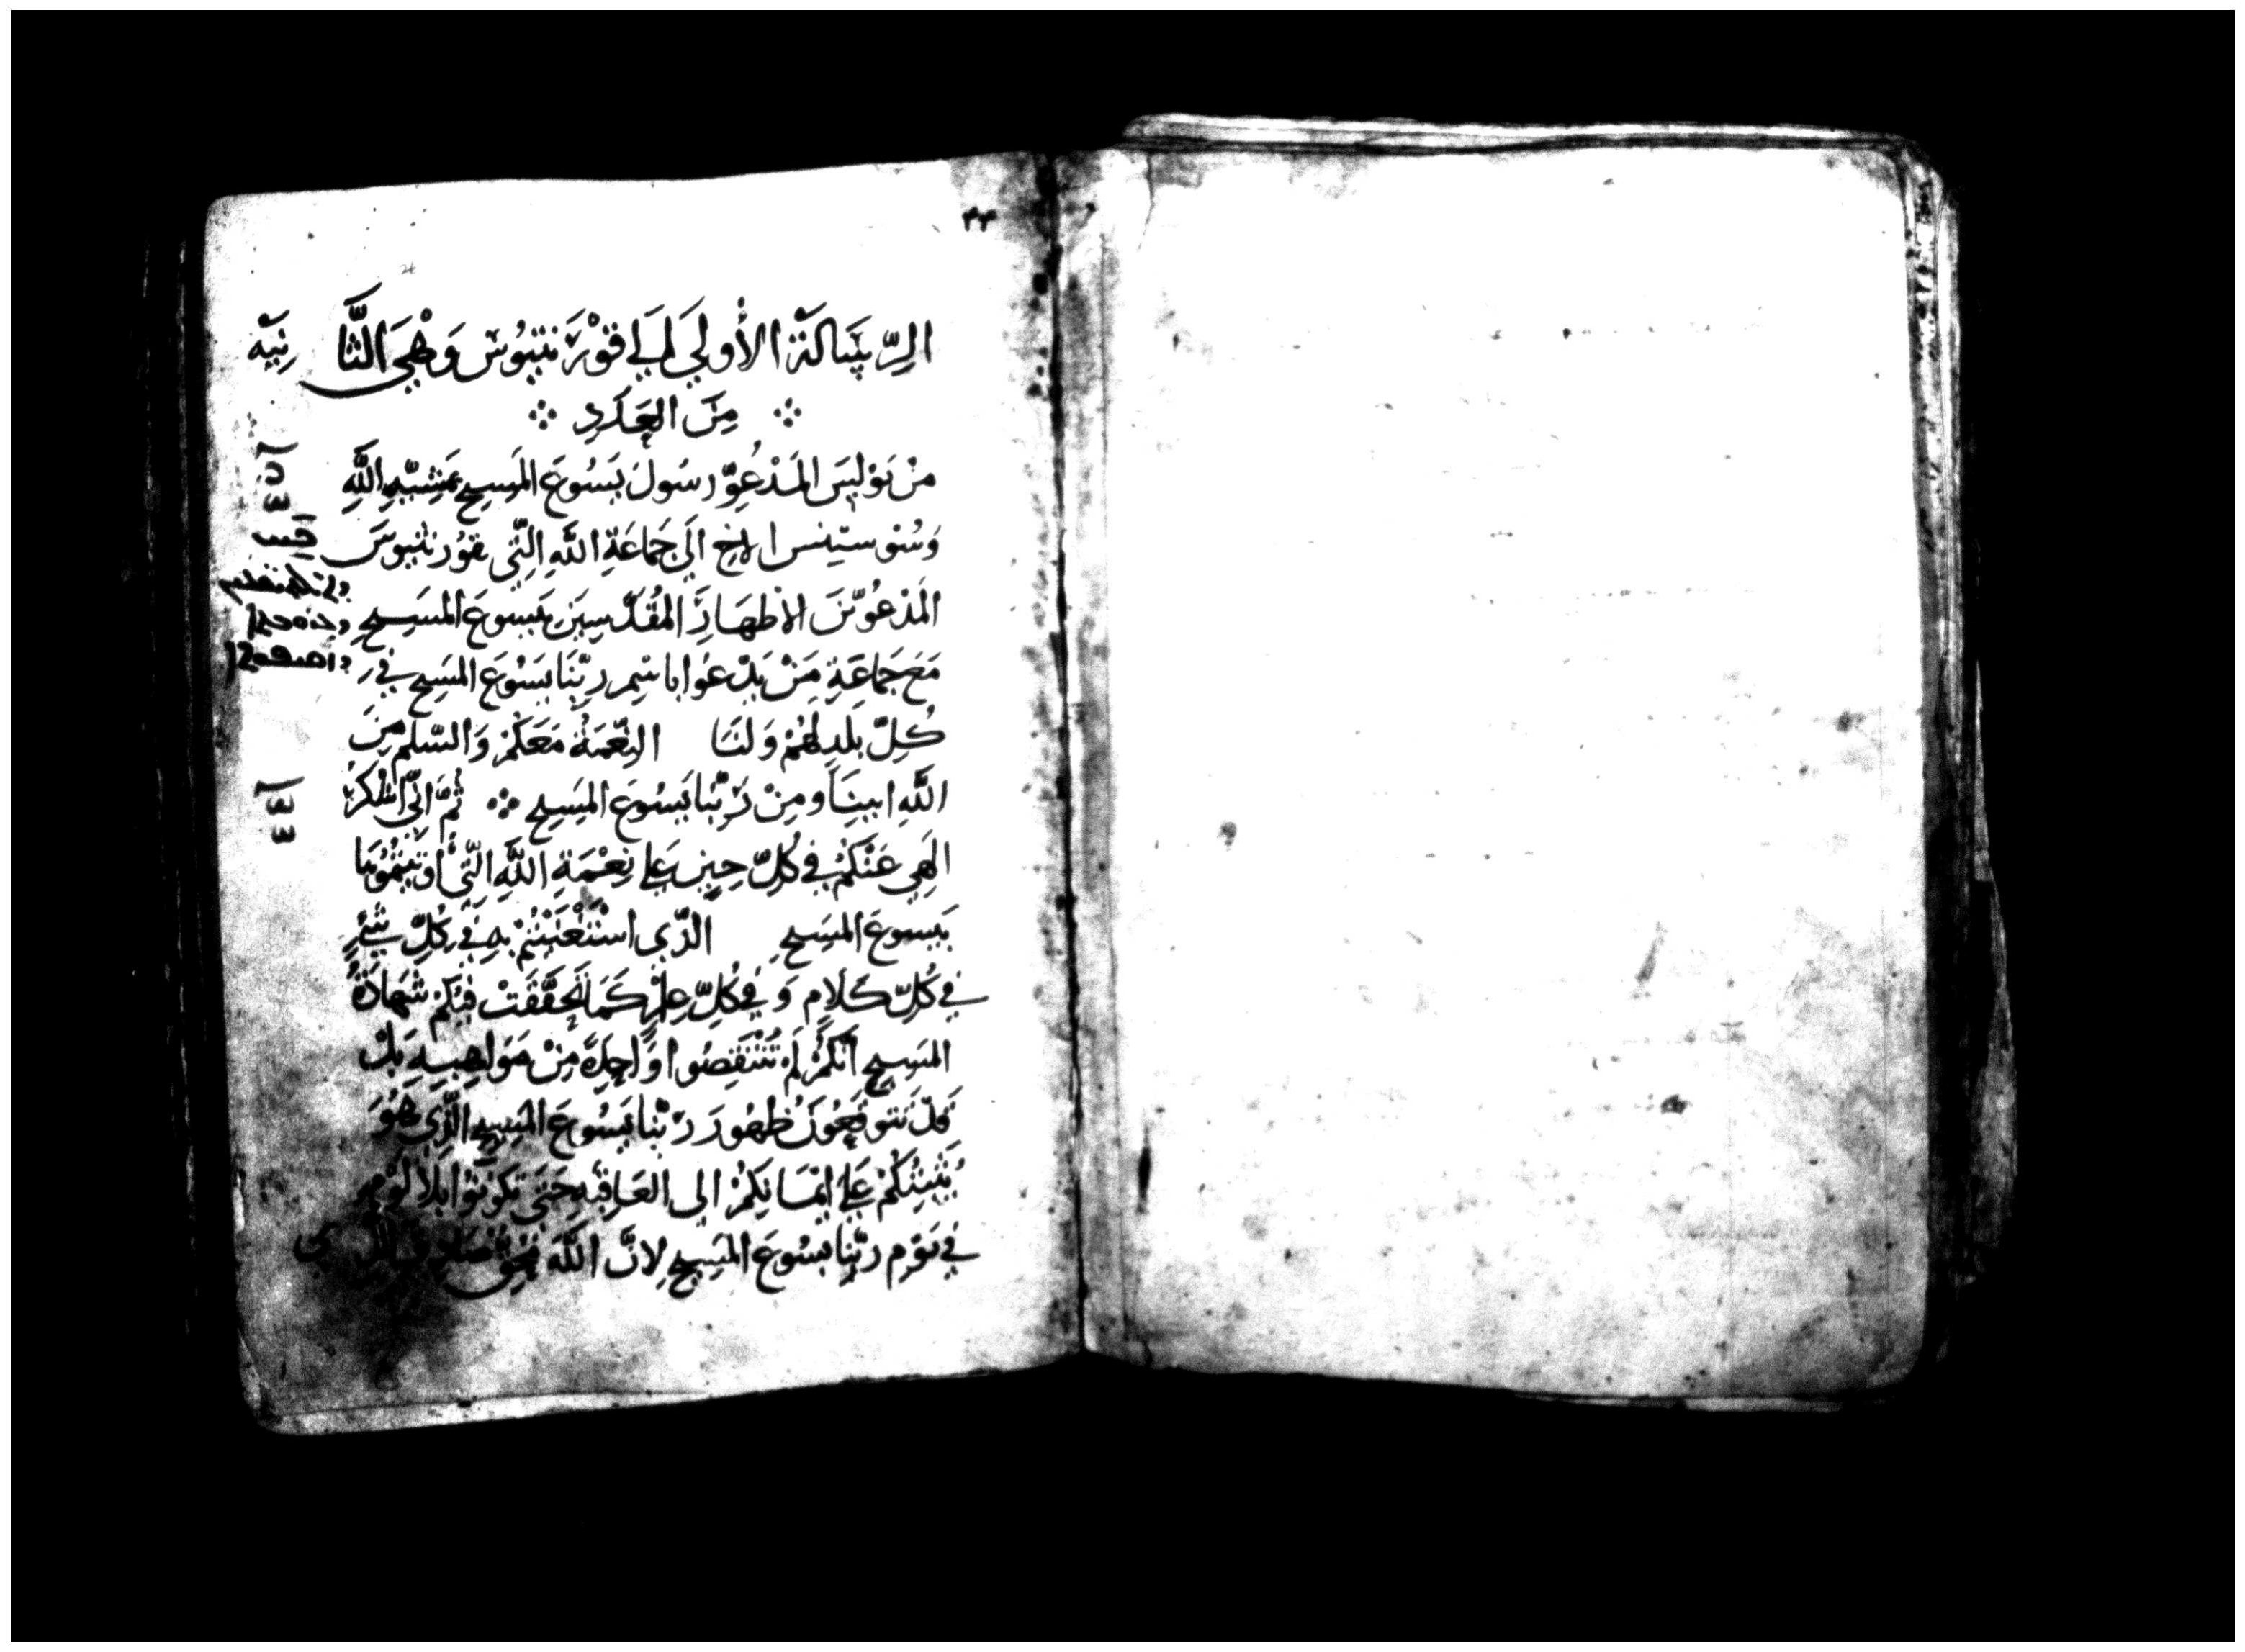 ٣٣
الرِّسَالَةُ الأُولَي إِلَي قُوْرَنثيُوسَ وَهْيَ الثَّانِيَه
مِنَ العَدَدِ
مِنْ بَوْلسَ المَدْعُوِّ رسَولَ يَسُوعَ المَسِيحِ بمَشِيّهِ اللَّهِ
وَسُوْستينس الاخ الَى جَمَاعَةِ اللَّهِ الِتّى بقوُرنثيوسَ
المَدْعُوّينَ الاطهَارَ المُقَدّسِينَ بيَسوعَ المسَيحِ
مَعَ جَمَاعَةِ مَنْ يَدْعُوا باسْمِ ربّنَا يَسُوعَ المَسِيحِ في
كُلِّ بَلَدِ لهُمْ وَلنَا النِّعْمَةُ مَعَكمْ وَالسّلم مِنَ
اللَّهِ ابينَا ومِنْ رَبّنا يَسُوعَ المَسِيحِ ثُمّ انّى اشْكرُ
الهِى عَنْكُمْ في كُلِّ حِينٍ عَلى نِعْمَةِ اللَّهِ الّتى اوتيتمُوُهَا
بيَسوعَ المسَيحِ الذّى اسْتَغْنَيْتُمْ بهِ في كُلِّ شَيٍ
في كُلِّ كَلَامٍ وَفي كُلِّ عِلمٍ كَمَا تَحَقَّقَتْ فيْكُمْ شَهَادَةُ
المسَيحِ انّكُمْ لَمْ تَنْتَقِصُوا وَاحِدَةً مِنْ مَوَاهبهِ بَلْ
تتَوقَّعُونَ ظُهُورَ رَبّنَا يَسُوعَ المَسِيحِ الّذِى هُوَ
يُثَبّتُكُمْ عَلى ايمَانِكُمْ الى العَاقبَهِ حَتى تكونوُا بلَا لَوْمٍ
في يَوْمِ ربّنِا يَسُوعَ المَسَيحِ لِانَّ اللَّهَ مُحِقٌّ